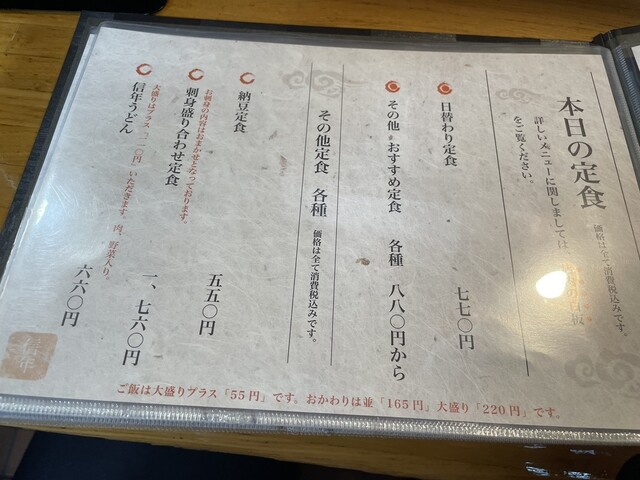 本日の定食
価格は全て消費税込みです。
詳しいメニューに関しましては
をご覧ください。
日替わり定食
七七〇円
その他・おすすめ定食 各種 八八〇円から
その他定食 各種 価格は全て消費税込みです。
納豆定食
五五〇円
お刺身の内容はおまかせとなっております。
刺身盛り合わせ定食
一、七六〇円
いただきます。肉、野菜入り。
信年うどん
六六〇円
ご飯は大盛りプラス「55円」です。おかわりは並「165円」大盛り「220円」です。